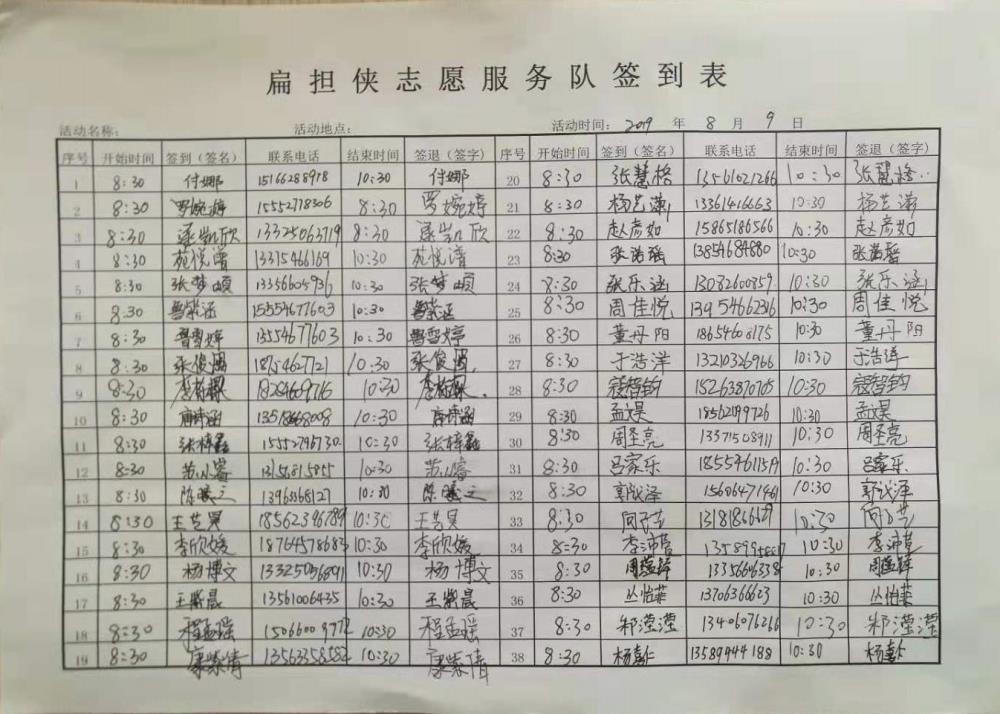 扁担侠志愿服务队签到表
活动名称： 活动地点： 活动时间： 2019 年 8 月 9 日
序号 开始时间 签到（签名） 联系电话 结束时间 签退（签字） 序号 开始时间 签到（签名） 联系电话 结束时间 签退（签字）
1 8:30 付娜 15166288918 10:30 付娜 20 8:30 张慧格 13561021266 10:30 张慧格
2 8:30 罗婉婷 15552778306 8:30 罗婉婷 21 8:30 杨艺潇 13361416663 10:30 杨艺潇
3 8:30 梁凯欣 13325063719 8:30 梁凯欣 22 8:30 赵彦如 15865186566 10:30 赵彦如
4 8:30 苑悦清 13315466169 10:30 苑悦清 23 8:30 13854684880 10:30
5 8:30 张梦頔 13356604936 10:30 张梦頔 24 8:30 张乐涵 13082600859 10:30 张乐涵
6 8:30 鲁紫涵 15554677603 10:30 鲁紫涵 25 8:30 周佳悦 13954662316 10:30 周佳悦
7 8:30 鲁雪婷 13554677603 10:30 鲁雪婷 26 8:30 董丹阳 18654606175 10:30 董丹阳
8 8:30 张俊 10:30 张俊 27 8:30 于浩洋 13210326966 10:30 于浩洋
9 8:30 10:30 28 8:30 寇智钧 15263870705 10:30 寇智钧
10 8:30 唐诗涵 10:30 唐诗涵 29 8:30 孟昊 18562099726 10:30 孟昊
11 8:30 张梓鑫 10:30 张梓鑫 30 8:30 周圣亮 13371508911 10:30 周圣亮
12 8:30 苏小睿 10:30 苏小睿 31 8:30 吕家乐 18554611519 10:30 吕家乐
13 8:30 陈曦之 13963368127 10:30 陈曦之 32 8:30 郭泽 15606471461 10:30 郭泽
14 8:30 王艺昊 18562396789 10:30 王艺昊 33 8:30 10:30
15 8:30 李欣媛 18764578683 10:30 李欣媛 34 8:30 李沛 10:30 李沛
16 8:30 杨博文 13325056891 10:30 杨博文 35 8:30 13356646338 10:30
17 8:30 王紫晨 13561006435 10:30 王紫晨 36 8:30 丛怡菲 13706366623 10:30 丛怡菲
18 8:30 程孟瑶 15066009772 10:30 程孟瑶 37 8:30 祁滢滢 13406076266 10:30 祁滢滢
19 8:30 康紫倩 13563358582 10:30 康紫倩 38 8:30 杨 13589944188 10:30 杨